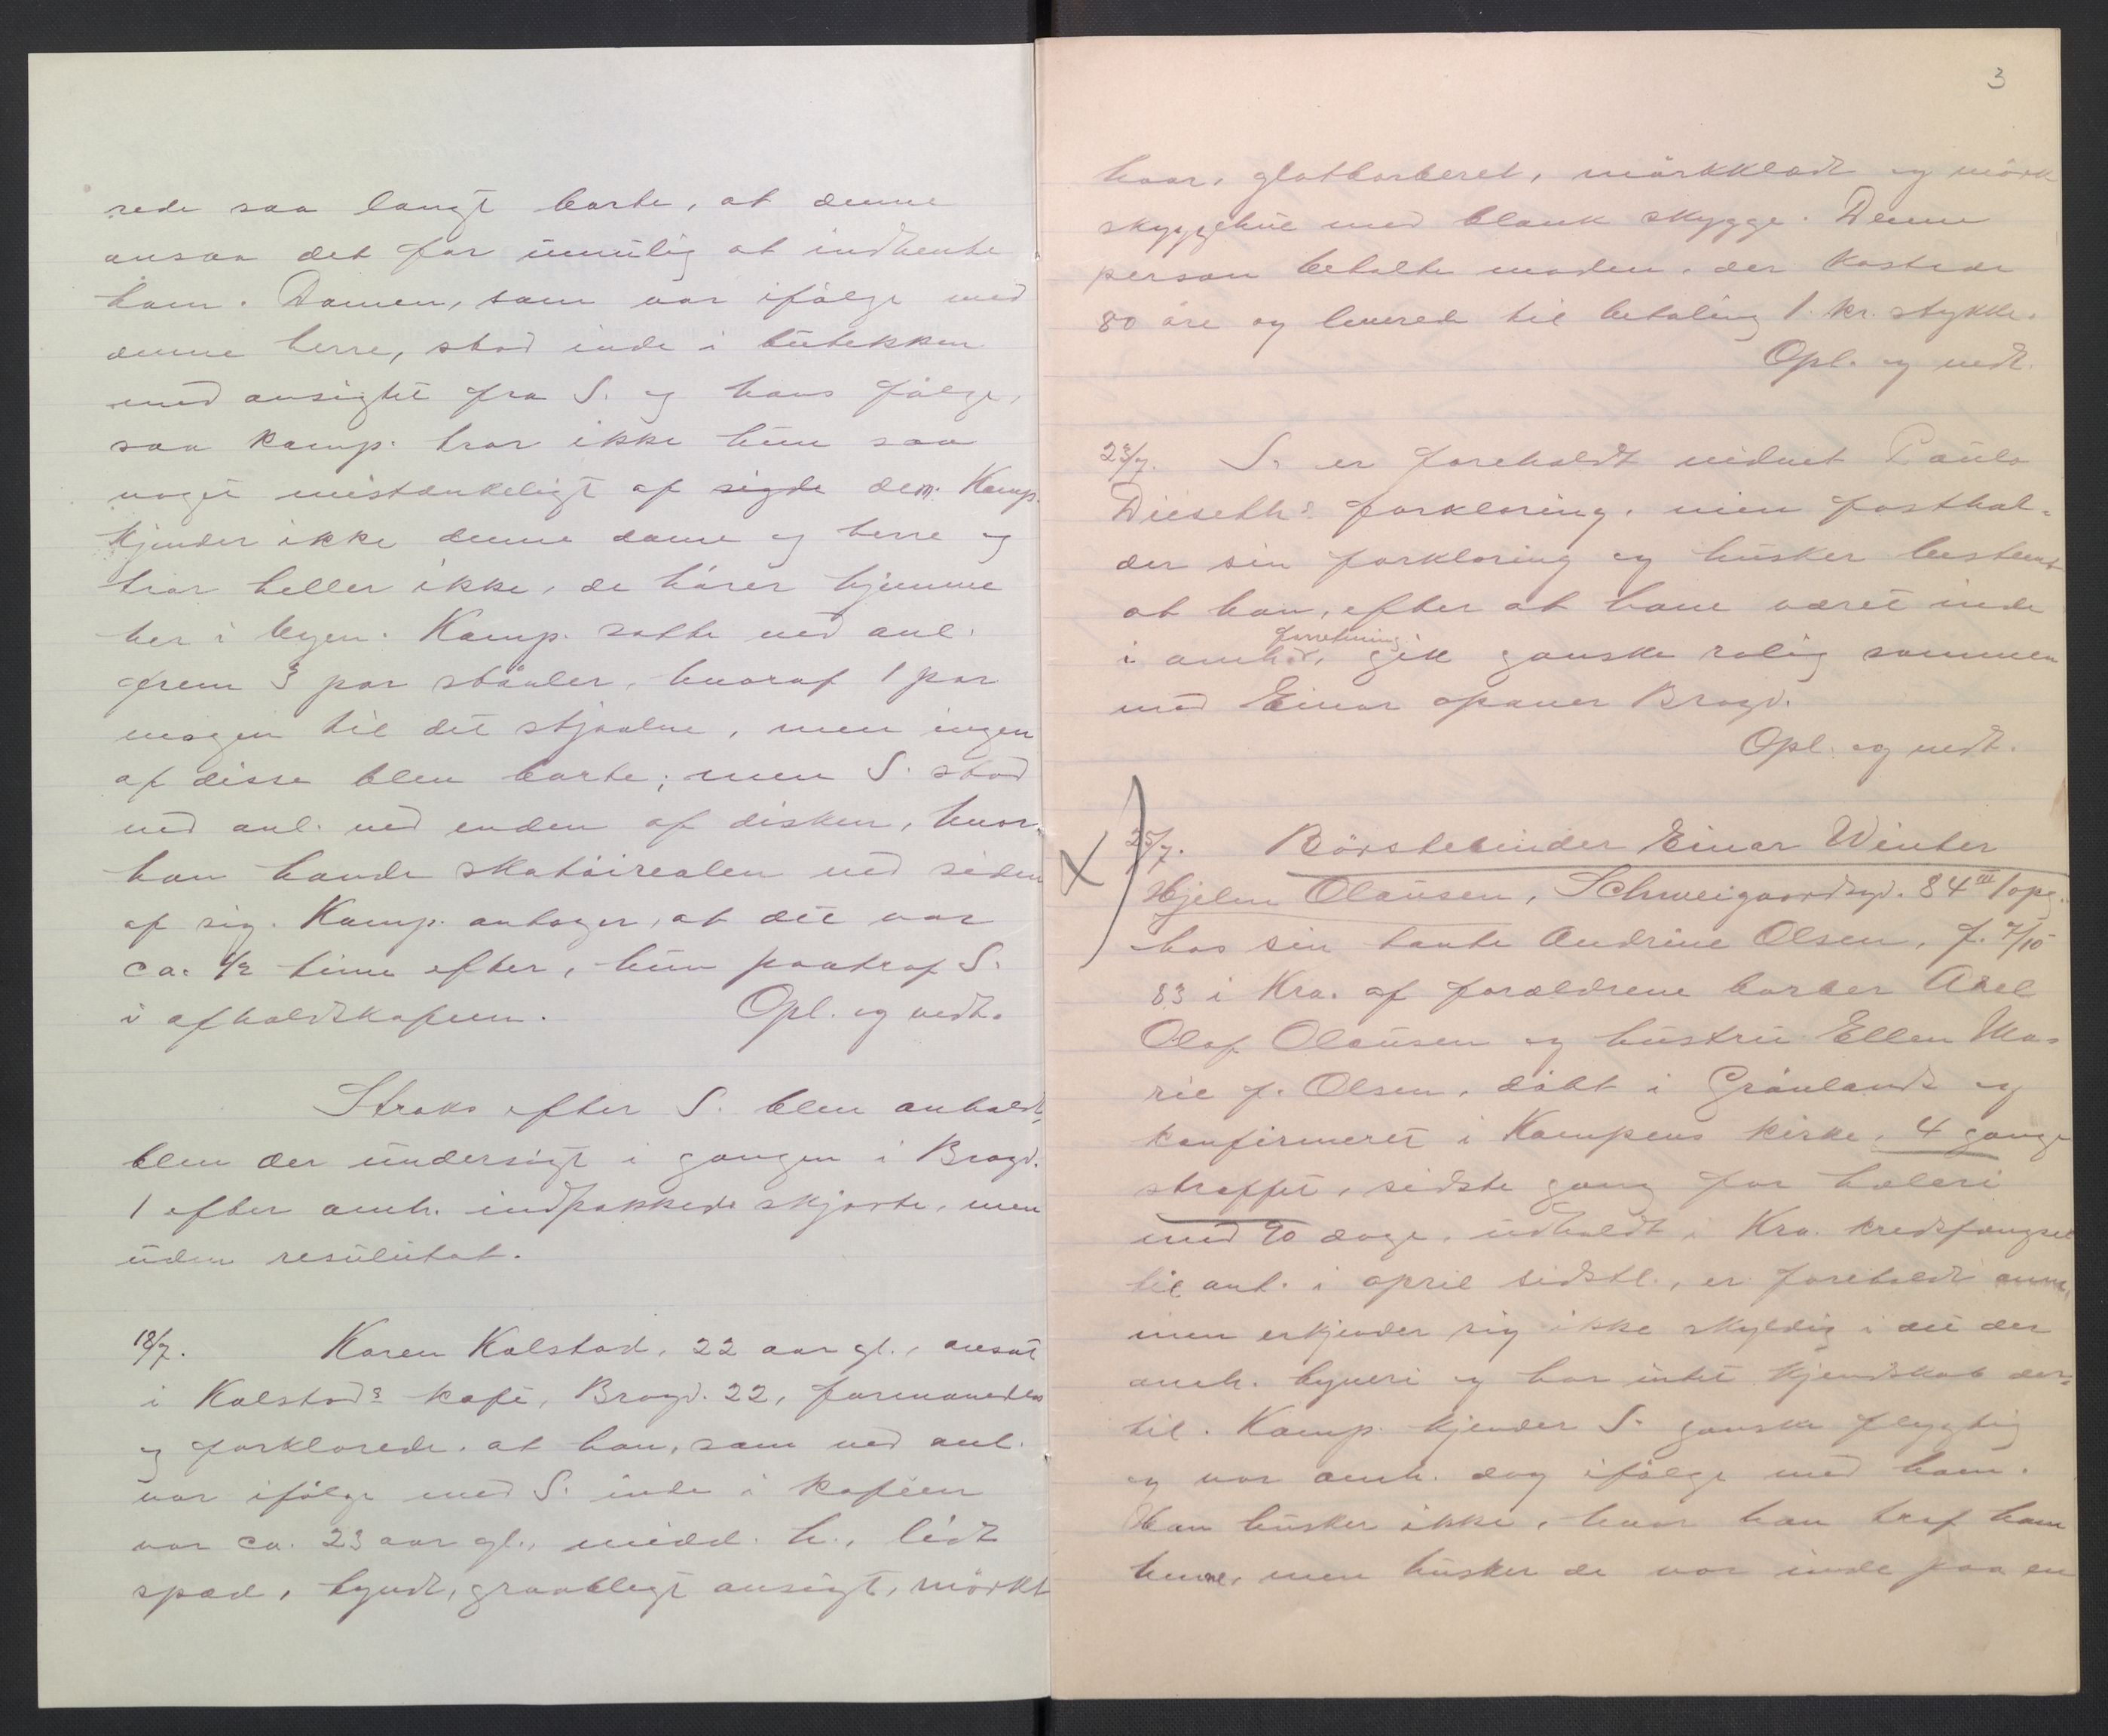 rede saa langt borte, at denne
ansaa det for umulig at indhente
ham. Damen, som var ifölge med
denne herre, stod inde i butikken
med ansigtet fra S. og hans fölge,
saa komp. tror ikke hun saa
noget mistænkeligt af sigde dem. Komp.
kjender ikke denne dame og herre og
tror heller ikke, de hörer hjemme
her i byen. Komp. satte ved anl.
frem 3 par stövler, hvoraf 1 par
magen til det stjaalne, men ingen
af disse blev borte; men S. stod
ved anl. ved enden af disken, hvor
han havde skotöirealen ved siden
af sig. Komp. antager, at det var
ca. 1/2 time efter, hun paatraf S.
i afholdskafeen. Opl. og vedt.
Straks efter S. blev anholdt,
blev der undersögt i gangen i Brogd.
1 efter anmh. indpakkede skjorte, men
uden resulutat.
18/7. Karen Kolstad, 22 aar gl., ansat
i Kolstads kafe, Brogd. 22, formanedes
og forklarede, at han, som ved anl.
var ifölge med S. inde i kafeen
var ca. 23 aar gl., midd. h., lidt
spæd, tyndt, graablegt ansigt, mörkt
3
haar, glatbarberet, mörkklædt og mörk
skyggehue med blank skygge. Denne
person betalte maden, der kostede
80 öre og leverede til betaling 1 kr. stykke.
Opl. og vedt.
23/7. S. er foreholdt vidnet Pauls
Dieseths forklaring, men fasthol-
der sin forklaring og husker bestemt
at han, efter at have været inde
forretning
i anmh., gik ganske rolig sammen
med Einar opover Brogd.
Opl. og vedt.
X 25/7. Börstebinder Einar Winter
Hjelm Olausen, Schweigaardsgd. 84 III opg.
hos sin tante Andrine Olsen, f. 7/10
83 i Kra. af forældrene barber Axel
Olaf Olausen og hustru Ellen Ma-
rie f. Olsen, döbt i Grönlands og
konfirmeret i Kampens kirke, 4 gange
straffet, sidste gang for hæleri
med 90 dage, udholdt i Kra. kredsfængsel
til ant. i april sidstl., er foreholdt anm.
men erkjender sig ikke skyldig i det der
anmh. tyveri og har intet kjendskab der-
til. Komp. kjender S. ganske flygtig
og var anmh. dag ifölge med ham.
Han husker ikke, hvor han traf ham
henne, men husker de var inde paa en